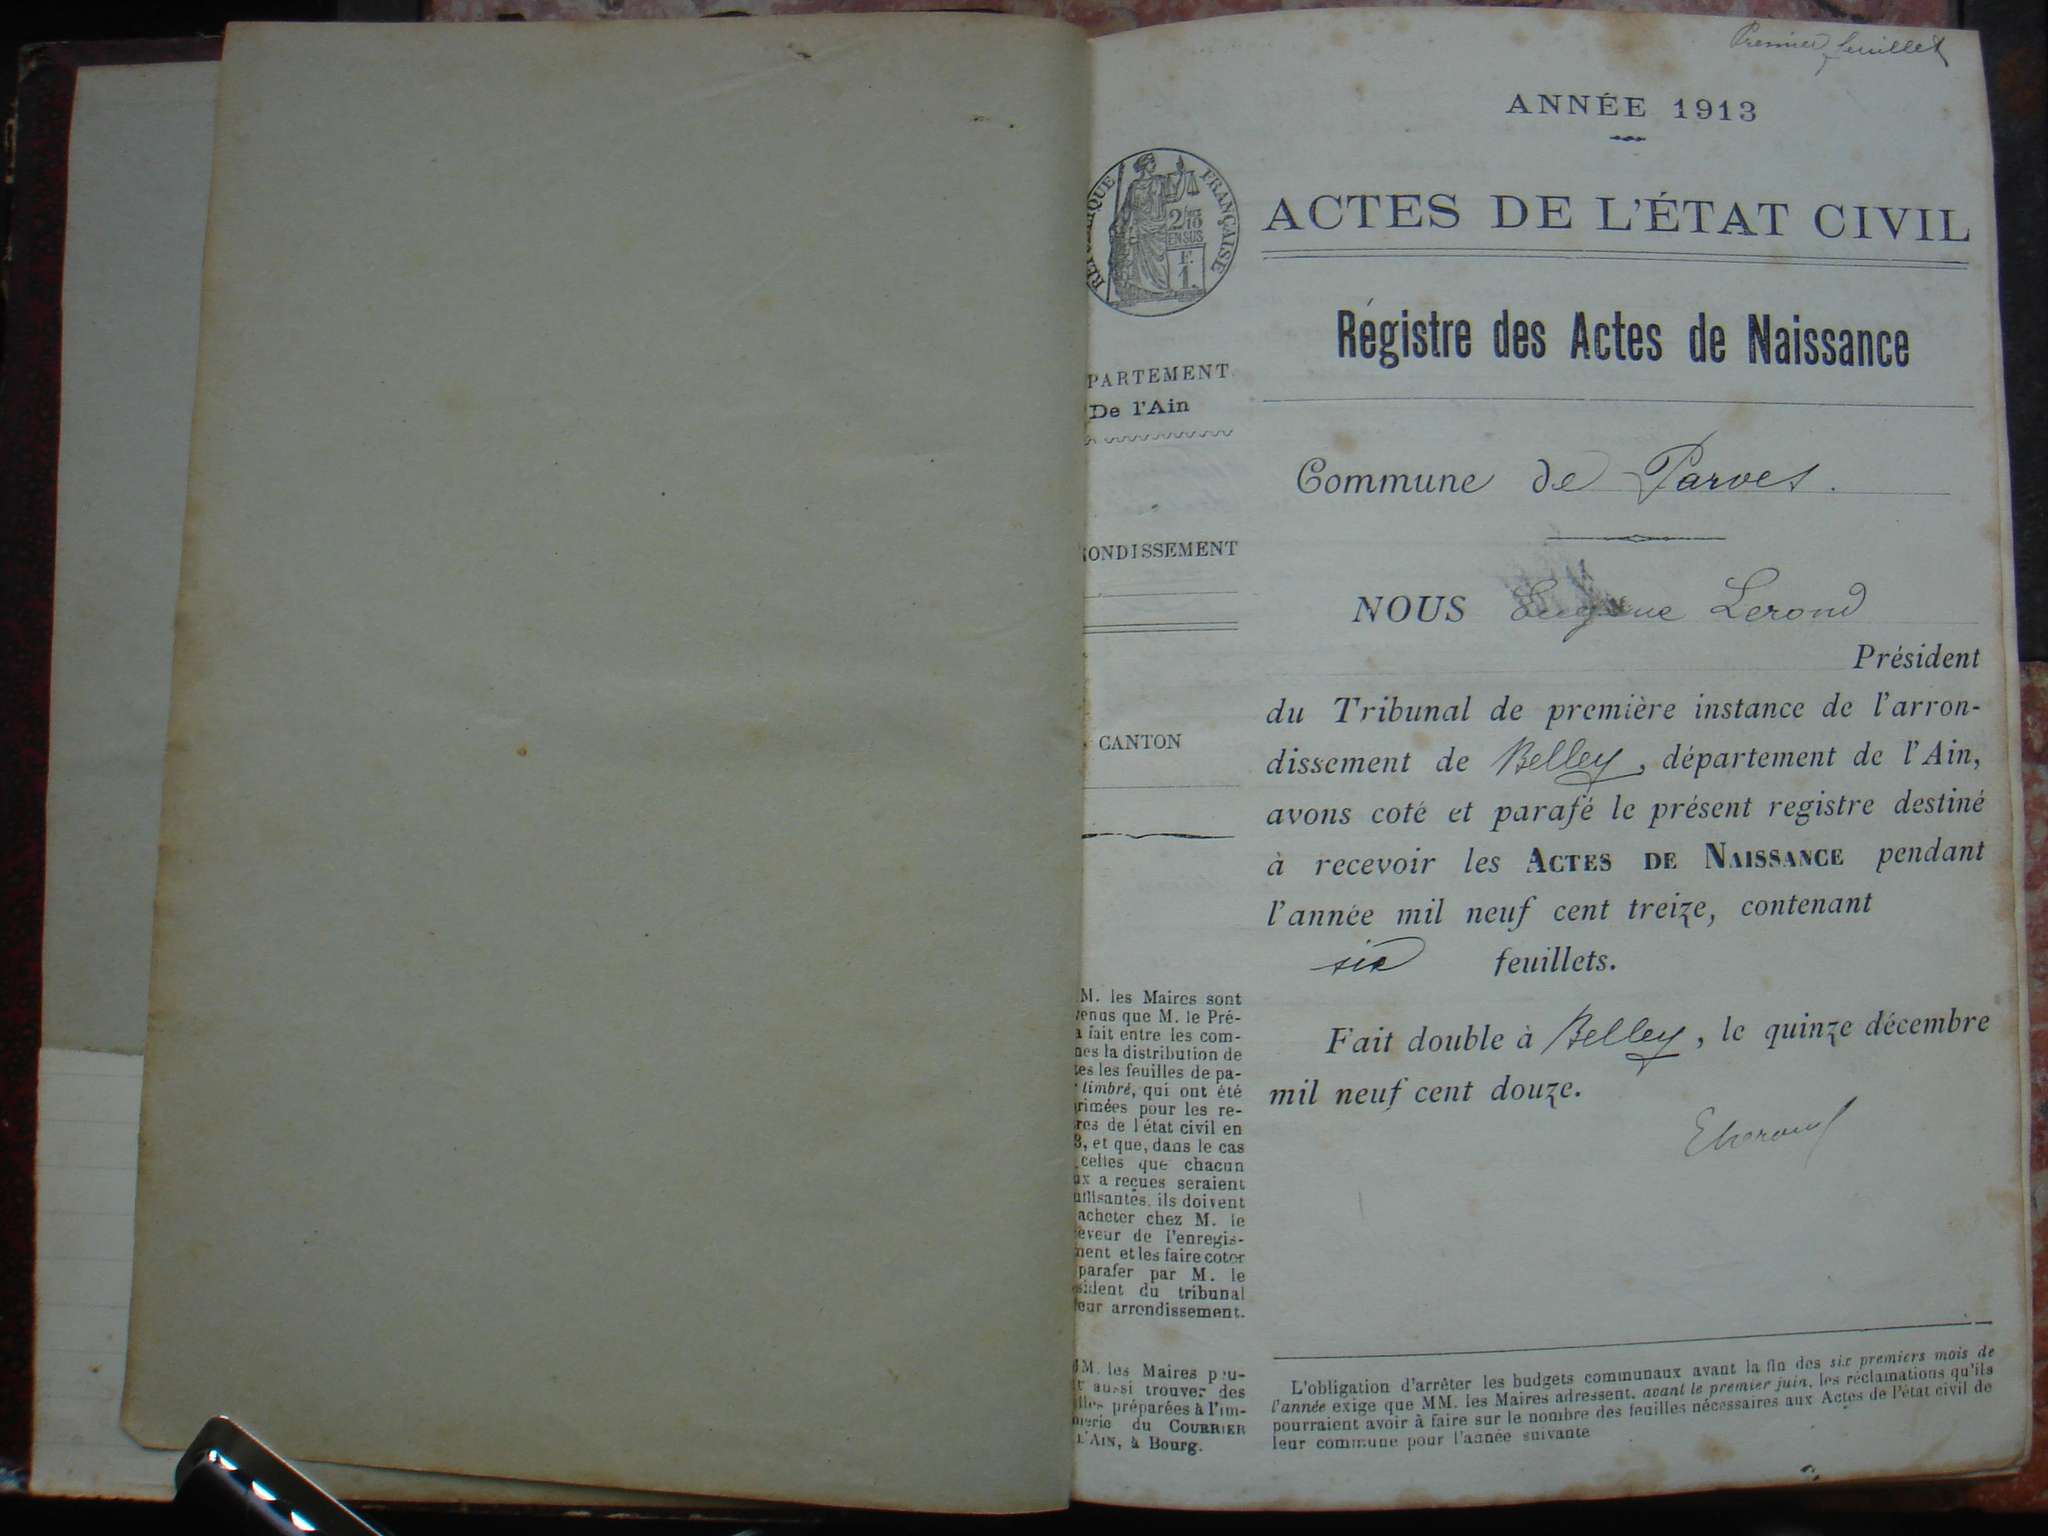 Premier feuillet
ANNÉE 1913
RÉPUBLIQUE FRANÇAISE
2/10
EN SUS
F.
1.
ACTES DE L'ÉTAT CIVIL
Régistre des Actes de Naissance
PARTEMENT
De l'Ain
Commune de Parves.
ONDISSEMENT
NOUS Eugène Lerond
Président
du Tribunal de première instance de l'arron-
dissement de Belley, département de l'Ain,
avons coté et parafé le présent registre destiné
à recevoir les ACTES DE NAISSANCE pendant
l'année mil neuf cent treize, contenant
six feuillets.
Fait double à Belley, le quinze décembre
mil neuf cent douze.
ELerond
CANTON
M. les Maires sont
venus que M. le Pré-
a fait entre les com-
nes la distribution de
tes les feuilles de pa-
timbré, qui ont été
rimées pour les re-
res de l'état civil en
3, et que, dans le cas
celles que chacun
ux a reçues seraient
uffisantes, ils doivent
acheter chez M. le
eveur de l'enregis-
ment et les faire coter
parafer par M. le
sident du tribunal
leur arrondissement.
MM. les Maires peu-
t aussi trouver des
illes préparées à l'im-
merie du COURRIER
L'AIN, à Bourg.
L'obligation d'arrêter les budgets communaux avant la fin des six premiers mois de
l'année exige que MM. les Maires adressent, avant le premier juin, les réclamations qu'ils
pourraient avoir à faire sur le nombre des feuilles nécessaires aux Actes de l'état civil de
leur commune pour l'année suivante